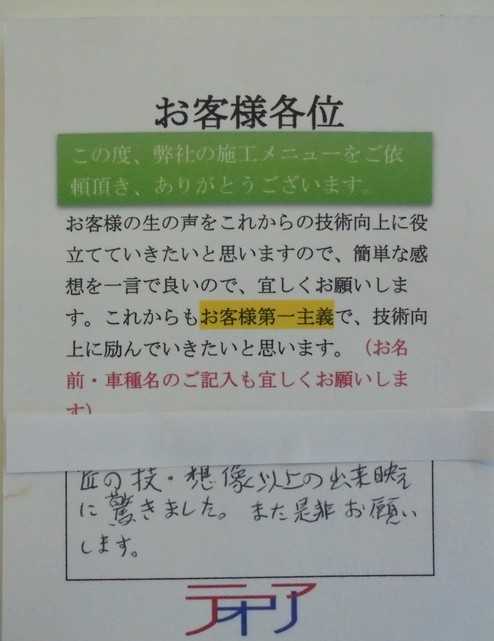 お客様各位
この度、弊社の施工メニューをご依
頼頂き、ありがとうございます。
お客様の生の声をこれからの技術向上に役
立てていきたいと思いますので、簡単な感
想を一言で良いので、宜しくお願いしま
す。これからもお客様第一主義で、技術向
上に励んでいきたいと思います。（お名
前・車種名のご記入も宜しくお願いしま
す）
匠の技・想像以上の出来映え
に驚きました。また是非お願い
します。